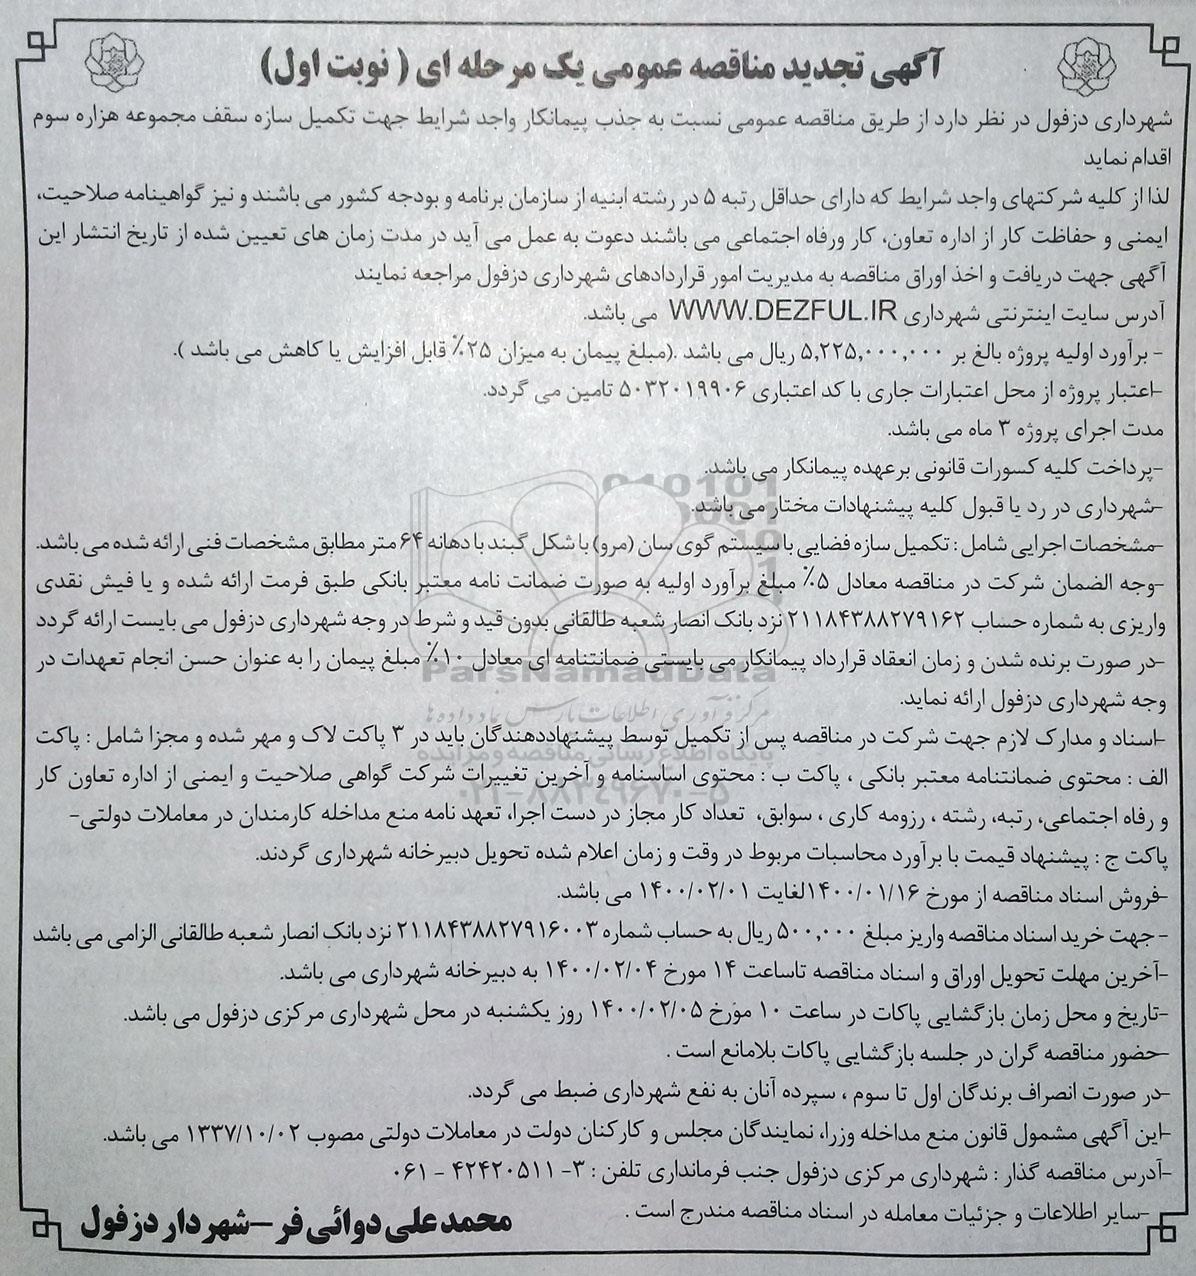 آگهی تجدید مناقصه عمومی یک مرحله ای ( نوبت اول)
شهرداری دزفول در نظر دارد از طریق مناقصه عمومی نسبت به جذب پیمانکار واجد شرایط جهت تکمیل سازه سقف مجموعه هزاره سوم
اقدام نماید
لذا از کلیه شرکتهای واجد شرایط که دارای حداقل رتبه ۵ در رشته ابنیه از سازمان برنامه و بودجه کشور می باشند و نیز گواهینامه صلاحیت،
ایمنی و حفاظت کار از اداره تعاون، کار ورفاه اجتماعی می باشند دعوت به عمل می آید در مدت زمان های تعیین شده از تاریخ انتشار این
آگهی جهت دریافت و اخذ اوراق مناقصه به مدیریت امور قراردادهای شهرداری دزفول مراجعه نمایند
آدرس سایت اینترنتی شهرداری WWW.DEZFUL.IR می باشد.
- برآورد اولیه پروژه بالغ بر ۵,۲۲۵,۰۰۰,۰۰۰ ریال می باشد .(مبلغ پیمان به میزان ۲۵٪ قابل افزایش یا کاهش می باشد ).
-اعتبار پروژه از محل اعتبارات جاری با کد اعتباری ۵۰۳۲۰۱۹۹۰۶ تامین می گردد.
مدت اجرای پروژه ۳ ماه می باشد.
-پرداخت کلیه کسورات قانونی برعهده پیمانکار می باشد.
-شهرداری در رد یا قبول کلیه پیشنهادات مختار می باشد.
-مشخصات اجرایی شامل : تکمیل سازه فضایی با سیستم گوی سان (مرو) با شکل گنبد با دهانه ۶۴ متر مطابق مشخصات فنی ارائه شده می باشد.
-وجه الضمان شرکت در مناقصه معادل ۵٪ مبلغ برآورد اولیه به صورت ضمانت نامه معتبر بانکی طبق فرمت ارائه شده و یا فیش نقدی
واریزی به شماره حساب ۲۱۱۸۴۳۸۸۲۷۹۱۶۲ نزد بانک انصار شعبه طالقانی بدون قید و شرط در وجه شهرداری دزفول می بایست ارائه گردد
-در صورت برنده شدن و زمان انعقاد قرارداد پیمانکار می بایستی ضمانتنامه ای معادل ۱۰٪ مبلغ پیمان را به عنوان حسن انجام تعهدات در
وجه شهرداری دزفول ارائه نماید.
-اسناد و مدارک لازم جهت شرکت در مناقصه پس از تکمیل توسط پیشنهاددهندگان باید در ۳ پاکت لاک و مهر شده و مجزا شامل : پاکت
الف : محتوی ضمانتنامه معتبر بانکی ، پاکت ب : محتوی اساسنامه و آخرین تغییرات شرکت گواهی صلاحیت و ایمنی از اداره تعاون کار
و رفاه اجتماعی، رتبه، رشته ، رزومه کاری ، سوابق، تعداد کار مجاز در دست اجرا، تعهد نامه منع مداخله کارمندان در معاملات دولتی-
پاکت ج : پیشنهاد قیمت با برآورد محاسبات مربوط در وقت و زمان اعلام شده تحویل دبیرخانه شهرداری گردند.
-فروش اسناد مناقصه از مورخ ۱۴۰۰/۰۱/۱۶لغایت ۱۴۰۰/۰۲/۰۱ می باشد.
- جهت خرید اسناد مناقصه واریز مبلغ ۵۰۰,۰۰۰ ریال به حساب شماره ۲۱۱۸۴۳۸۸۲۷۹۱۶۰۰۳ نزد بانک انصار شعبه طالقانی الزامی می باشد
-آخرین مهلت تحویل اوراق و اسناد مناقصه تاساعت ۱۴ مورخ ۱۴۰۰/۰۲/۰۴ به دبیرخانه شهرداری می باشد.
-تاریخ و محل زمان بازگشایی پاکات در ساعت ۱۰ مورخ ۱۴۰۰/۰۲/۰۵ روز یکشنبه در محل شهرداری مرکزی دزفول می باشد.
-حضور مناقصه گران در جلسه بازگشایی پاکات بلامانع است .
-در صورت انصراف برندگان اول تا سوم ، سپرده آنان به نفع شهرداری ضبط می گردد.
-این آگهی مشمول قانون منع مداخله وزرا، نمایندگان مجلس و کارکنان دولت در معاملات دولتی مصوب ۱۳۳۷/۱۰/۰۲ می باشد.
-آدرس مناقصه گذار : شهرداری مرکزی دزفول جنب فرمانداری تلفن : ۳- ۴۲۴۲۰۵۱۱ - ۰۶۱
-سایر اطلاعات و جزئیات معامله در اسناد مناقصه مندرج است .
محمدعلی دوائی فر-شهردار دزفول
ParsNamadData
مرکز فرآوری اطلاعات پارس نماد داده ها
پایگاه اطلاع رسانی مناقصه و مزایده
۰۲۱-۸۸۳۴۹۶۷۰-۵